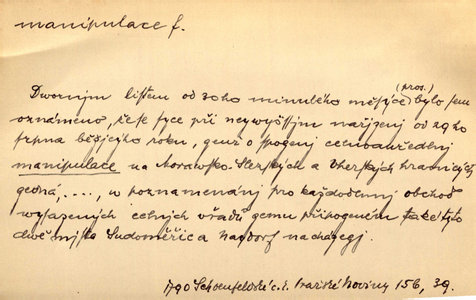 manipulace f.
(pros.)
Dworným listem od 30ho minulého měsýce bylo sem
oznámeno, že se syce při neywyšssím nařjzenj od 29ho
srpna běžjcýho roku, genž o spogenj celnouřednj
manipulace na Morawsko-Slezských a Vherských hranicých
gedná, ...., w poznamenánj pro každodennj obchod
wysazených celných ouřadů gemu připogeném také tyto
dwě mjsta Sudoměřice a Naydorf nacházegj.
1790 Schoenfeldské c. k. Pražské Noviny 156, 39.